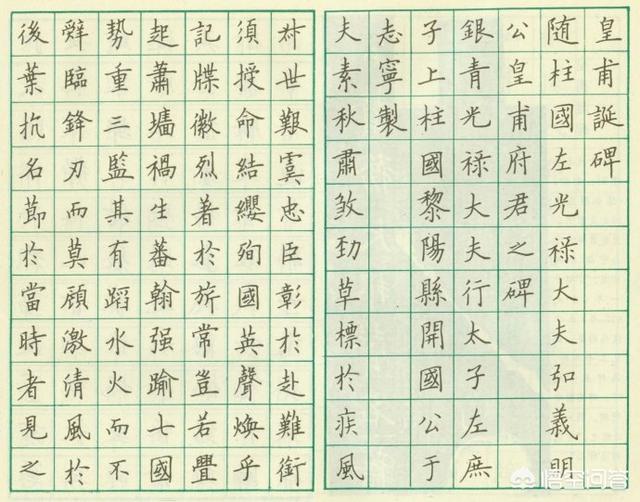 皇甫誕碑
随柱國左光禄大夫弘義明
公皇甫府君之碑
銀青光禄大夫行太子左庶
子上柱國黎陽縣開國公于
志寧製
夫素秋肅煞勁草標於疾風
叔世艱虞忠臣彰於赴難銜
須授命結纓殉國英聲煥乎
記牒徽烈著於旂常豈若疊
起蕭墻禍生蕃翰强踰七國
勢重三監其有蹈水火而不
辭臨鋒刃而莫顧激清風於
後葉抗名節於當時者見之
悟空问答